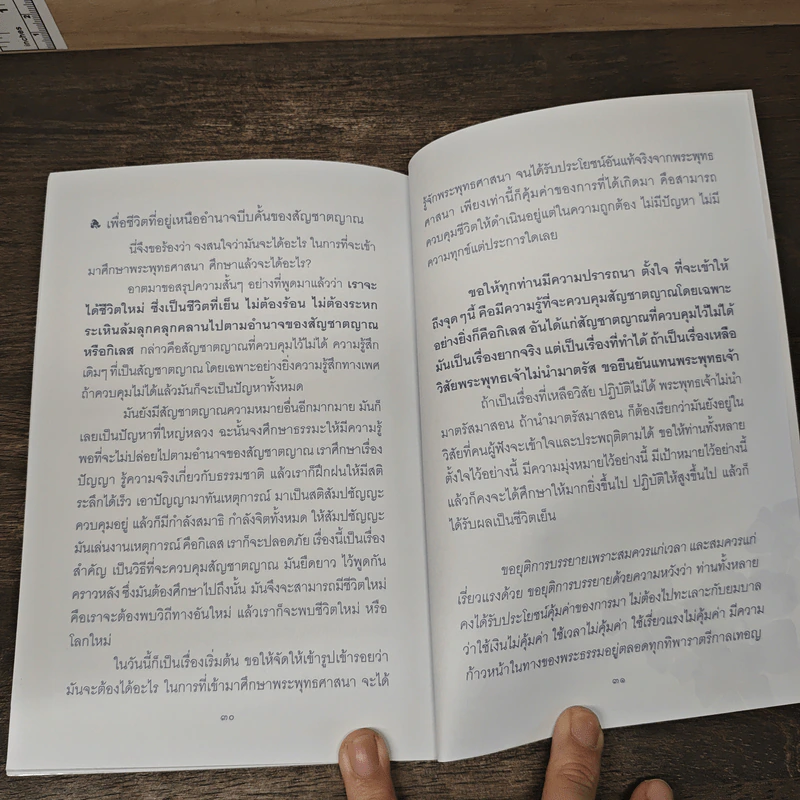 เพื่อชีวิตที่อยู่เหนืออำนาจบีบคั้นของสัญชาตญาณ
นี่จึงขอร้องว่า จงสนใจว่ามันจะได้อะไร ในการที่จะเข้า
มาศึกษาพระพุทธศาสนา ศึกษาแล้วจะได้อะไร?
อาตมาขอสรุปความสั้นๆ อย่างที่พูดมาแล้วว่า เราจะ
ได้ชีวิตใหม่ ซึ่งเป็นชีวิตที่เย็น ไม่ต้องร้อน ไม่ต้องระหก
ระเหินล้มลุกคลุกคลานไปตามอำนาจของสัญชาตญาณ
หรือกิเลส กล่าวคือสัญชาตญาณที่ควบคุมไว้ไม่ได้ ความรู้สึก
เดิมๆ ที่เป็นสัญชาตญาณ โดยเฉพาะอย่างยิ่งความรู้สึกทางเพศ
ถ้าควบคุมไม่ได้แล้วมันก็จะเป็นปัญหาทั้งหมด
มันยังมีสัญชาตญาณความหมายอื่นอีกมากมาย มันก็
เลยเป็นปัญหาที่ใหญ่หลวง ฉะนั้นจงศึกษาธรรมะให้มีความรู้
พอที่จะไม่ปล่อยไปตามอำนาจของสัญชาตญาณ เราศึกษาเรื่อง
ปัญญา รู้ความจริงเกี่ยวกับธรรมชาติ แล้วเราก็ฝึกฝนให้มีสติ
ระลึกได้เร็ว เอาปัญญามาทันเหตุการณ์ มาเป็นสติสัมปชัญญะ
ควบคุมอยู่ แล้วก็มีกำลังสมาธิ กำลังจิตทั้งหมด ให้สัมปชัญญะ
มันเล่นงานเหตุการณ์ คือกิเลส เราก็จะปลอดภัย เรื่องนี้เป็นเรื่อง
สำคัญ เป็นวิธีที่จะควบคุมสัญชาตญาณ มันยืดยาว ไว้พูดกัน
คราวหลัง ซึ่งมันต้องศึกษาไปถึงนั้น มันจึงจะสามารถมีชีวิตใหม่
คือเราจะต้องพบวิถีทางอันใหม่ แล้วเราก็จะพบชีวิตใหม่ หรือ
โลกใหม่
ในวันนี้ก็เป็นเรื่องเริ่มต้น ขอให้จัดให้เข้ารูปเข้ารอยว่า
มันจะต้องได้อะไร ในการที่เข้ามาศึกษาพระพุทธศาสนา จะได้
๓๐
รู้จักพระพุทธศาสนา จนได้รับประโยชน์อันแท้จริงจากพระพุทธ
ศาสนา เพียงเท่านี้ก็คุ้มค่าของการที่ได้เกิดมา คือสามารถ
ควบคุมชีวิตให้ดำเนินอยู่แต่ในความถูกต้อง ไม่มีปัญหา ไม่มี
ความทุกข์แต่ประการใดเลย
ขอให้ทุกท่านมีความปรารถนา ตั้งใจ ที่จะเข้าให้
ถึงจุดๆนี้ คือมีความรู้ที่จะควบคุมสัญชาตญาณโดยเฉพาะ
อย่างยิ่งก็คือกิเลส อันได้แก่สัญชาตญาณที่ควบคุมไว้ไม่ได้
มันเป็นเรื่องยากจริง แต่เป็นเรื่องที่ทำได้ ถ้าเป็นเรื่องเหลือ
วิสัยพระพุทธเจ้าไม่นำมาตรัส ขอยืนยันแทนพระพุทธเจ้า
ถ้าเป็นเรื่องที่เหลือวิสัย ปฏิบัติไม่ได้ พระพุทธเจ้าไม่นำ
มาตรัสมาสอน ถ้านำมาตรัสมาสอน ก็ต้องเรียกว่ามันยังอยู่ใน
วิสัยที่คนผู้ฟังจะเข้าใจและประพฤติตามได้ ขอให้ท่านทั้งหลาย
ตั้งใจไว้อย่างนี้ มีความมุ่งหมายไว้อย่างนี้ มีเป้าหมายไว้อย่างนี้
แล้วก็คงจะได้ศึกษาให้มากยิ่งขึ้นไป ปฏิบัติให้สูงขึ้นไป แล้วก็
ได้รับผลเป็นชีวิตเย็น
ขอยุติการบรรยายเพราะสมควรแก่เวลา และสมควรแก่
เรี่ยวแรงด้วย ขอยุติการบรรยายด้วยความหวังว่า ท่านทั้งหลาย
คงได้รับประโยชน์คุ้มค่าของการมา ไม่ต้องไปทะเลาะกับยมบาล
ว่าใช้เงินไม่คุ้มค่า ใช้เวลาไม่คุ้มค่า ใช้เรี่ยวแรงไม่คุ้มค่า มีความ
ก้าวหน้าในทางของพระธรรมอยู่ตลอดทุกทิพาราตรีกาลเทอญ
๓๑
inches
1
2